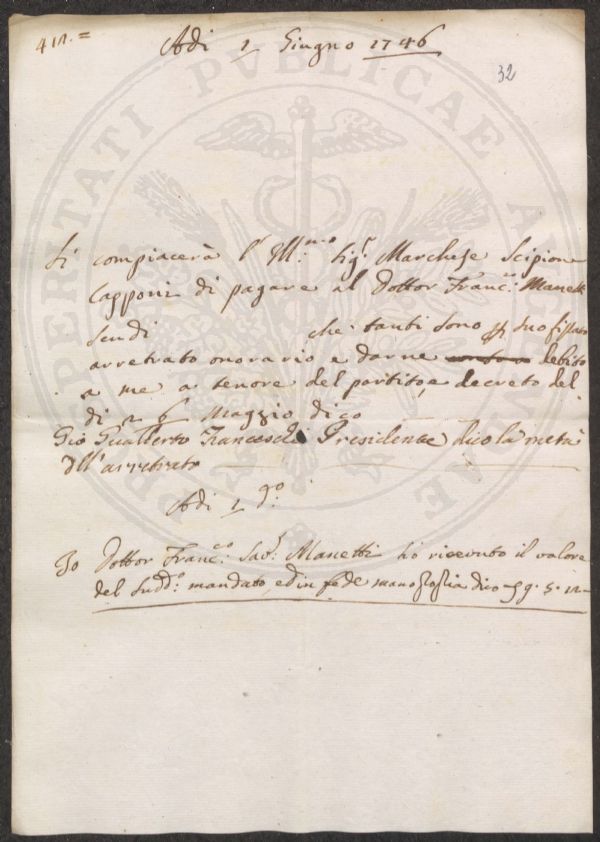 Adi 1 Giugno 1746
32
Si compiacerà l' Ill:mo Sig:r Marchese Scipione
Capponi di pagare al Dottor Franc:co Manetti
Scudi che tanti sono p suo fissato
arretrato onorario e darne debito
a me a tenore del partito, e decreto del
di 26 Maggio dico
Gio Gualberto Franceschi Presidente dico la metà
dell'arretrato
Adi 1 do:
Io Dottor Franc:co Sav:r Manetti hò ricevuto il valore
del sudd:o mandato, ed in fede mano propria dico
PROSPERITATI PVBLICAE AVGENDAE